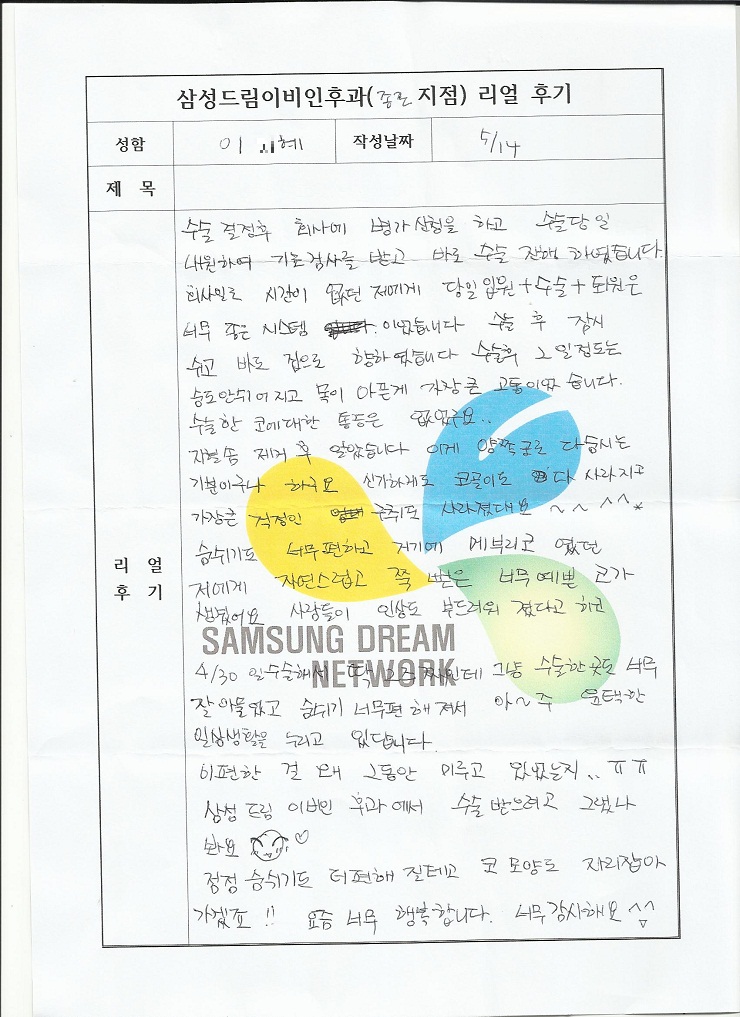 삼성드림이비인후과(종로 지점) 리얼 후기
성함 이 혜 작성날짜 5/14
제 목
수술 결정후 회사에 병가 신청을 하고 수술당일
내원하여 기초검사를 받고 바로 수술 진행 하였습니다.
회사일로 시간이 없던 저에게 당일 입원+수술+퇴원은
너무 좋은 시스템 이었습니다 수술 후 잠시
쉬고 바로 집으로 향하였습니다 수술후 2일정도는
숨도안쉬어지고 목이 아픈게 가장큰 고통이었습니다.
수술한 코에대한 통증은 없었구요..
지혈솜 제거 후 알았습니다 이게 양쪽코로 다숨쉬는
기분이구나 하구요 신기하게도 코골이도 다 사라지고
가장큰 걱정인 구취도 사라졌대요 ~ ~ ^^*
숨쉬기도 너무편하고 거기에 메부리코 였던
저에게 자연스럽고 쭉 뻗은 너무 예쁜 코가
생겼어요 사람들이 인상도 부드러워 졌다고 하고
SAMSUNG DREAM
NETWORK
4/30 일수술해서 딱 2주째인데 그냥 수술한곳도 너무
잘 아물었고 숨쉬기 너무편 해져서 아~주 윤택한
일상생활을 누리고 있답니다.
이편한 걸 왜 그동안 미루고 있었는지.. ㅠㅠ
삼성드림 이비인 후과에서 수술받으려고 그랬나
봐요 ♡
점점 숨쉬기도 더편해 질테고 코 모양도 자리잡아
가겠죠 !! 요즘 너무 행복합니다. 너무감사해요 ^^
리 얼
후 기